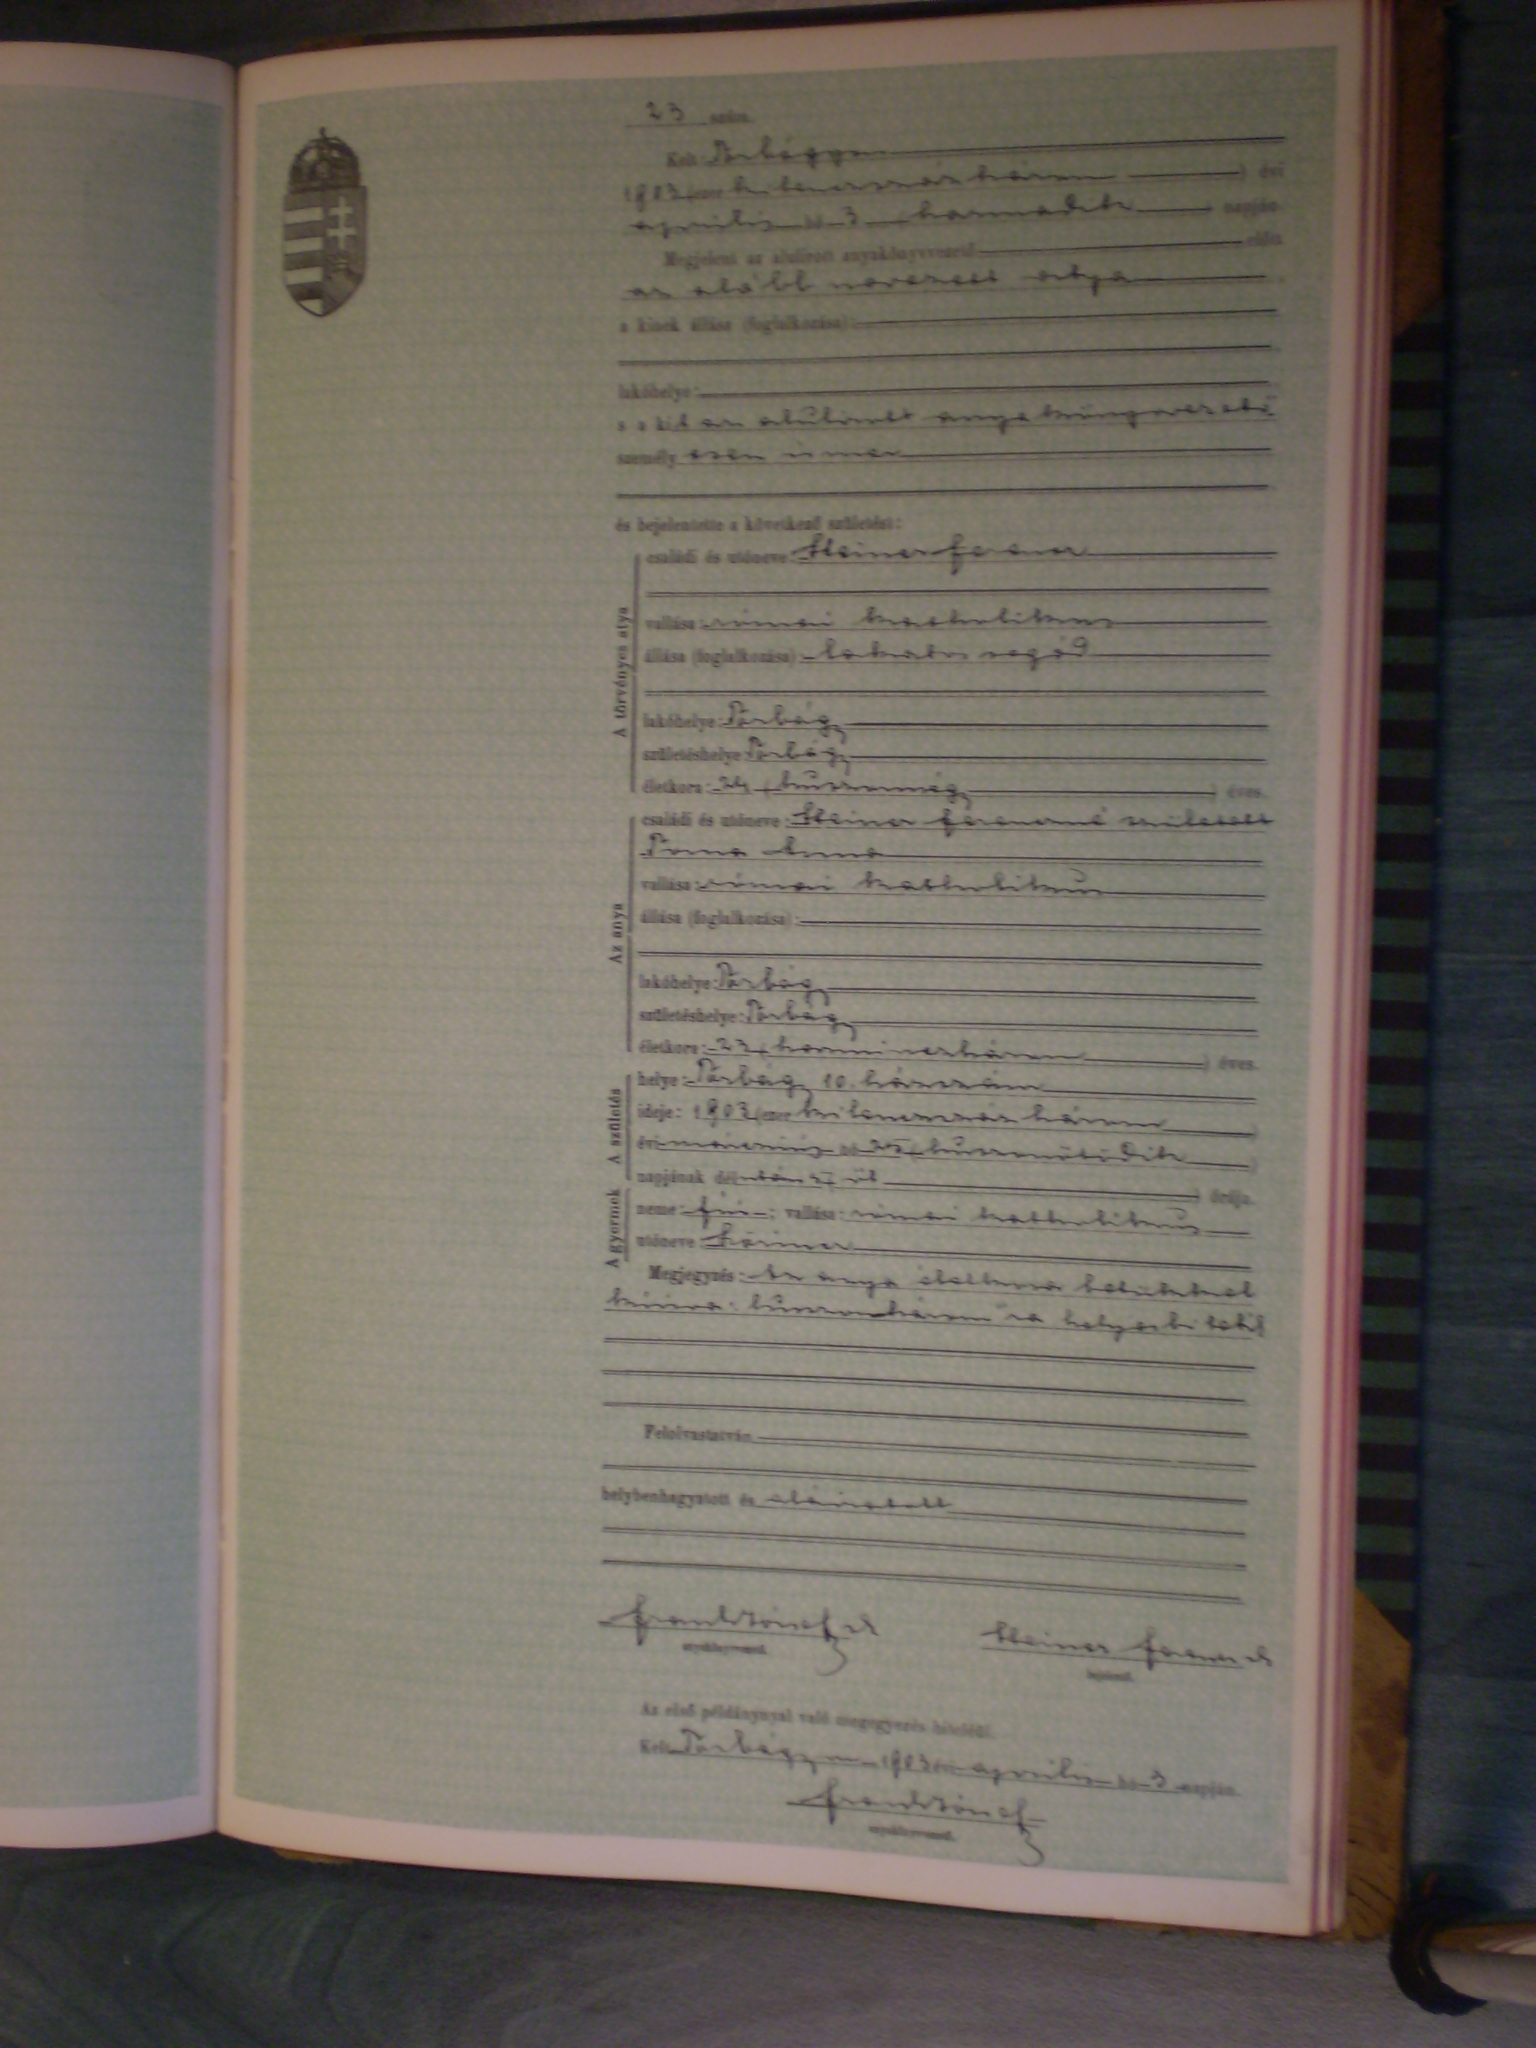 23 szám.
Kelt: Torbágyon
1903 (ezer kilencszázhárom) évi
április hó 3 (harmadik) napján.
Megjelent az alulírott anyakönyvvezető előtt
az alább nevezett atya
a kinek állása (foglalkozása):
lakóhelye:
s a kit az alulírott anyakönyvvezető
személyesen ismer
és bejelentette a következő születést:
A törvényes atya
családi és utóneve: Steiner Ferencz
vallása: római katholikus
állása (foglalkozása): lakatos segéd
lakóhelye: Torbágy
születéshelye: Torbágy
életkora: 24 (huszonnégy) éves.
Az anya
családi és utóneve: Steiner Ferenczné született
Anna
vallása: római katholikus
állása (foglalkozása):
lakóhelye: Torbágy
születéshelye: Torbágy
életkora: 23 (harminczhárom) éves.
A születés
helye: Torbágy 10. házszám
ideje: 1903 (ezer kilencszázhárom)
évi márczius hó 25 (huszonötödik)
napjának délután 5 öt órája.
A gyermek
neme: fiú; vallása: római katholikus
utóneve:
Megjegyzés: Az anya életkora betűkkel
kiírva: huszonhárom ra helyesbitetik
Felolvastatván
helybenhagyatott és aláíratott
József sk
anyakönyvvezető.
Steiner Ferencz sk
bejelentő.
Az első példánynyal való megegyezés hiteléül.
Kelt Torbágyon 1903 évi április hó 3 napján.
József
anyakönyvvezető.